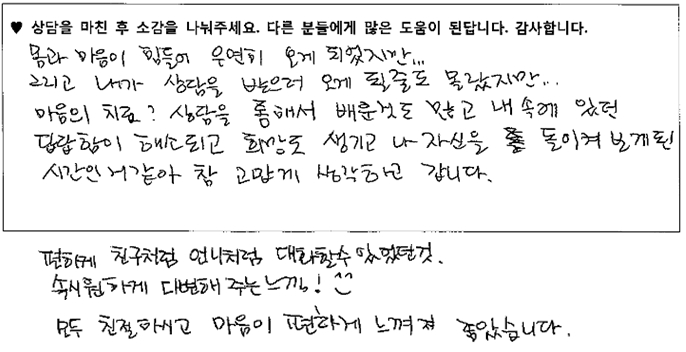 ♥ 상담을 마친 후 소감을 나눠주세요. 다른 분들에게 많은 도움이 된답니다. 감사합니다.
몸과 마음이 힘들어 우연히 오게 되었지만...
그리고 내가 상담을 받으러 오게 될줄도 몰랐지만...
마음의 치료? 상담을 통해서 배운것도 많고 내 속에 있던
답답함이 해소되고 희망도 생기고 나 자신을 돌이켜 보게된
시간인거같아 참 고맙게 생각하고 갑니다.
편하게 친구처럼 언니처럼 대화할수 있었던것.
속시원하게 대변해 주는느낌!
모두 친절하시고 마음이 편하게 느껴져 좋았습니다.